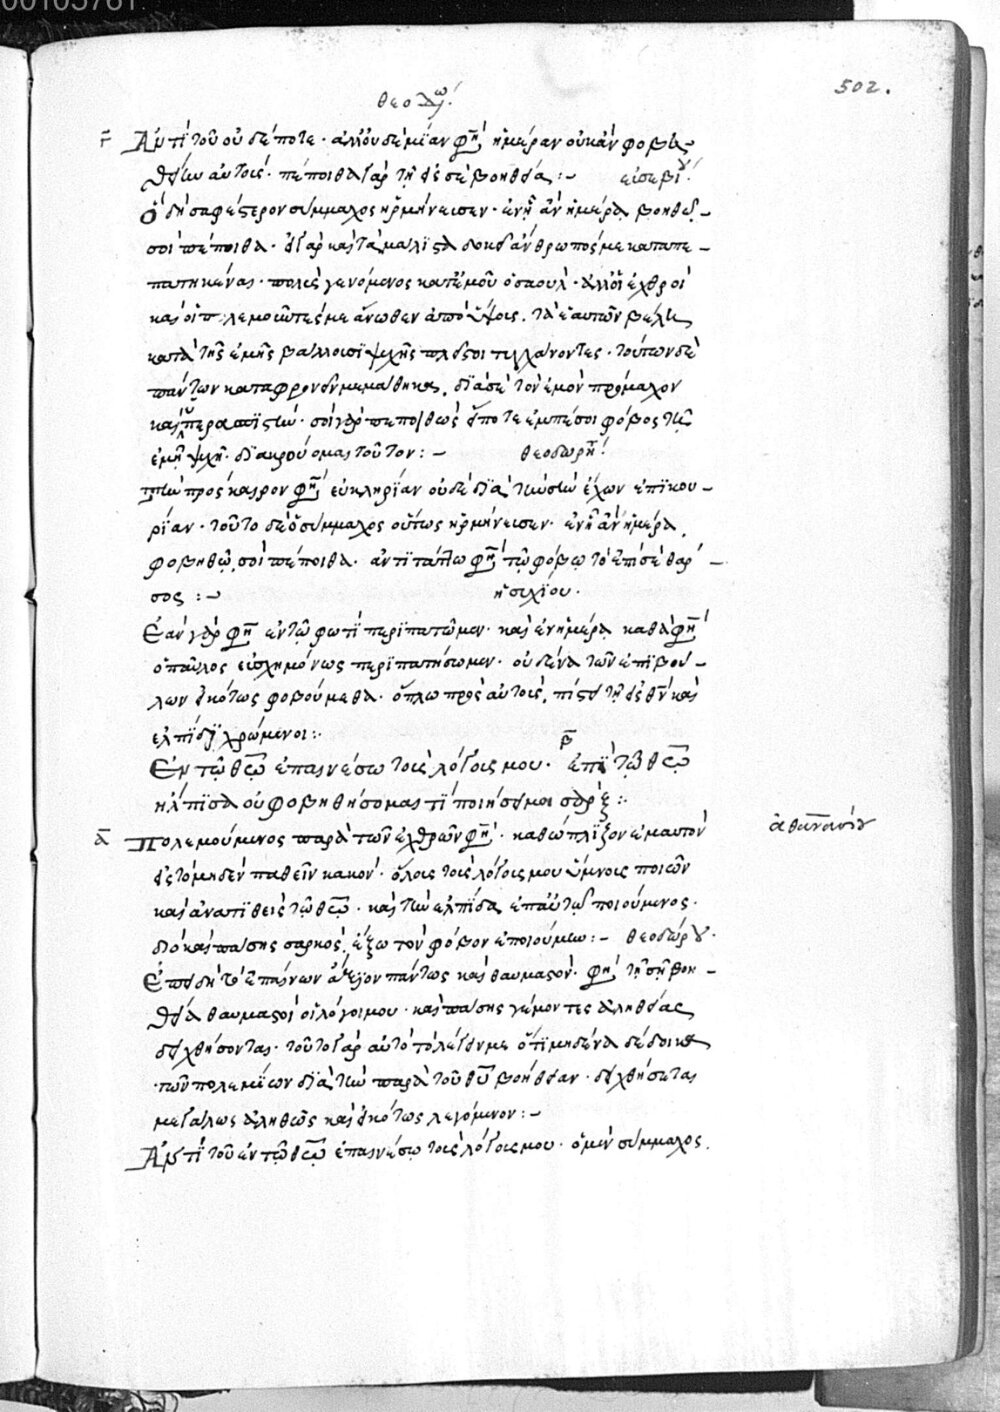 00105761
502.
θεοδώ
γ̄ Ἀντὶ τοῦ οὐδέποτε· ἀλλ' οὐδὲ μίαν φη(σὶ) ἡμέραν οὐκ ἂν φοβη
θείην αὐτούς· πέποιθα γὰρ τῇ εἰς σὲ βοηθεία :- εὐσεβίου
Ὁ δὴ σαφέστερον σύμμαχος ἡρμήνευσεν· ἐν ᾗ ἂν ἡμέρα
σοὶ πέποιθα· εἰ γὰρ καὶ τὰ μάλιστα δοκεῖ ἄνθρωπός με καταπε-
πατηκέναι· πολὺς γενόμενος κατ' ἐμοῦ ὁ σαούλ· ἀλλ' οἱ ἐχθροὶ
καὶ οἱ πολεμοῦντές με ἄνωθεν ἀπὸ ὕψους, τὰ ἑαυτῶν βέλη
κατὰ τῆς ἐμῆς βάλλουσι ψυχῆς πλεῖστοι τυγχάνοντες· τούτων δὲ
πάντων καταφρονεῖν μεμάθηκα, διὰ σὲ τὸν ἐμὸν πρόμαχον
καὶ ὑπερασπιστήν· σοὶ γὰρ πεποιθὼς εἴποτε ἐμπέσοι φόβος τῇ
ἐμῇ ψυχῇ· διακρούομαι τοῦτον :- θεοδωρήτ
τὴν πρόσκαιρον φη(σὶ) εὐκληρίαν οὐδὲ διὰ πίστιν ἔχων ἐπικου-
ρίαν· τοῦτο δὲ ὁ σύμμαχος οὕτως ἡρμήνευσεν· ἐν ᾗ ἂν ἡμέρα
φοβηθῶ, σοὶ πέποιθα· ἀντιτάττω φη(σὶ) τῷ φόβῳ τὸ ἐπὶ σὲ θάρ-
σος :- ἡσυχίου·
Ἐὰν γὰρ φη(σὶ) ἐν τῷ φωτὶ περιπατῶμεν· καὶ ἐν ἡμέρα καθά φη(σὶ)
ὁ παῦλος εὐσχημόνως περιπατήσωμεν· οὐδένα τῶν ἐπιβού-
λων εἰκότως φοβούμεθα· ὅπλω πρὸς αὐτούς, πίστει τῇ εἰς θν̄ καὶ
ἐλπίδι χρώμενοι :·
Ἐν τῷ θεῷ ἐπαινέσω τοὺς λόγους μου· β̄ ἐπὶ τῷ θεῷ
ἤλπισα οὐ φοβηθήσομαι τί ποιήσει μοι σάρξ :·
ᾱ Πολεμούμενος παρὰ τῶν ἐχθρῶν φη(σί)· καθώπλιζον ἐμαυτὸν ἀθανασίου
εἰς τὸ μηδὲν παθεῖν κακόν· ὅλους τοὺς λόγους μου ὕμνους ποιῶν
καὶ ἀνατιθεὶς τῷ θεῷ· καὶ τὴν ἐλπίδα ἐπ' αὐτῷ ποιούμενος·
διὸ καὶ πάσης σαρκὸς, ἔξω τὸν φόβον ἐποιούμην :- θεοδώρου·
Ἐπειδὴ τὸ ἐπαίνων ἄξιον πάντως καὶ θαυμαστόν· φη(σὶ) τῇ σῇ βοη-
θεία θαυμαστοὶ οἱ λόγοι μου· καὶ πάσης γέμοντες ἀληθείας
δειχθήσονται· τοῦτο γὰρ αὐτὸ τὸ λέγειν με ὅτι μηδένα δέδοικα
τῶν πολεμίων διὰ τὴν παρὰ τοῦ θῦ βοήθειαν· δειχθήσεται
μεγάλως ἀληθῶς καὶ εἰκότως λεγόμενον :-
Ἀντὶ τοῦ ἐν τῷ θεῷ ἐπαινέσω τοὺς λόγους μου· ὁ μὲν σύμμαχος.